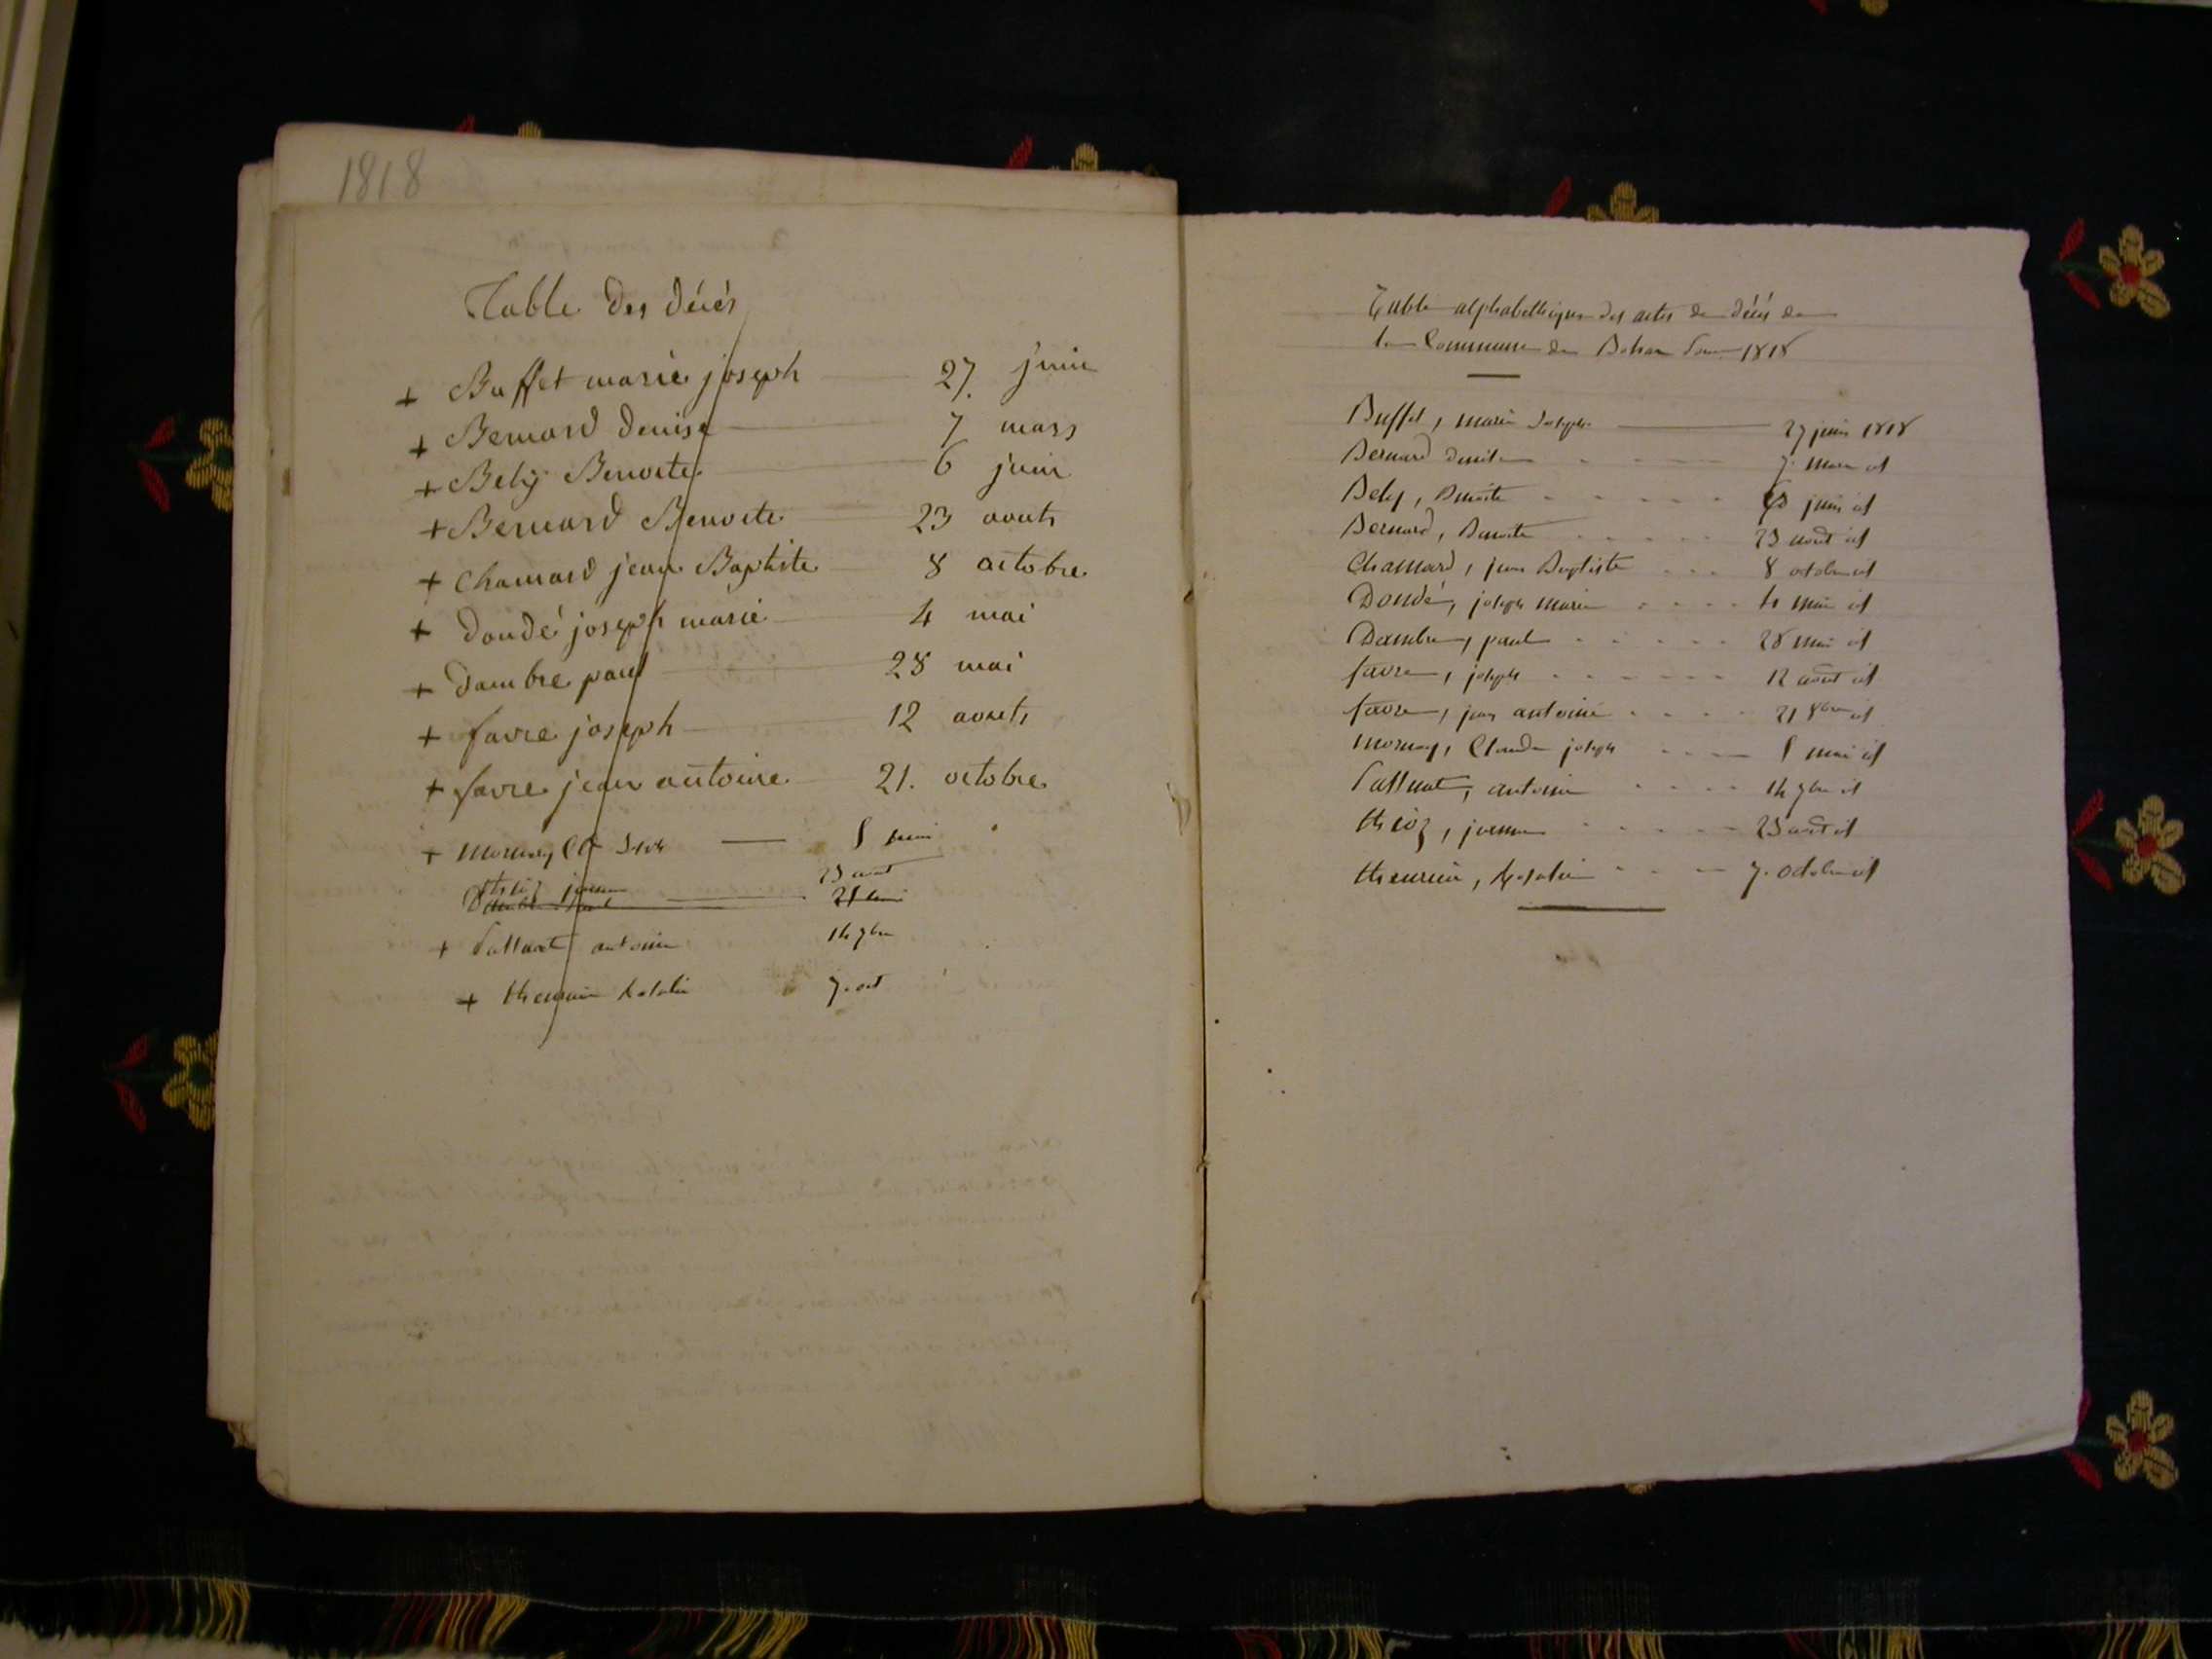 1818
Table des décés
+ Buffet marie joseph 27. juin
+ Bernard denise 7 mars
+ Bely Benoite 6 juin
+ Bernard Benoite 23 aouts
+ Chamard jean Baptiste 8 octobre
+ doudé joseph marie 4 mai
+ dambre paul 28 mai
+ favre joseph 12 aouts
+ favre jean antoine 21. octobre
+ mornay 8 mai
23 aout
+ antoine 14 9bre
+ 7. oct
Table alphabethique des actes de décés de
la Commune de Bohan pour 1818
Buffet, marie Joseph 27 juin 1818
Bernard denise 7. mars id
Bely, Benoite 6 juin id
Bernard, Benoite 23 aout id
Chamard, jean Baptiste 8 octobre id
Doudé, joseph marie 4 mai id
Dambre, paul 28 mai id
favre, joseph 12 aout id
favre, jean antoine 21 8bre id
mornay, Claude joseph 8 mai id
antoine 14 9bre id
23 aout id
7. octobre id